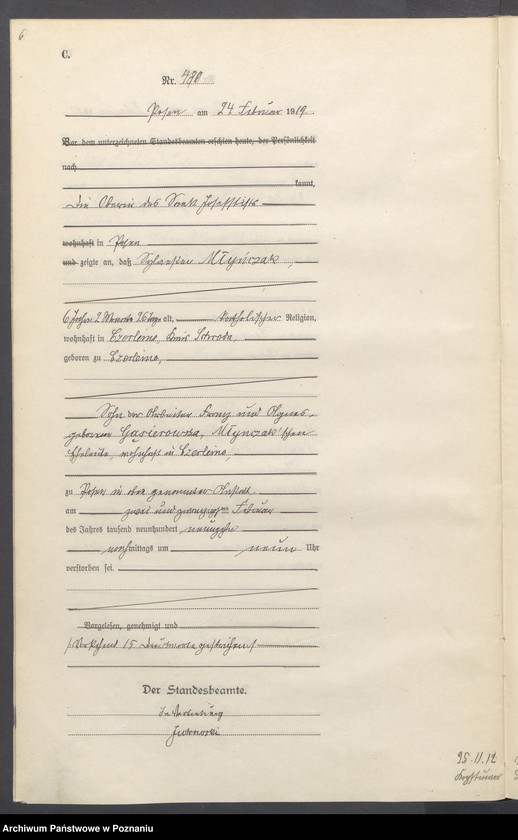 6
C.
Nr. 490
Posen am 24 Februar 1919.
Vor dem unterzeichneten Standesbeamten erschien heute, der Persönlichkeit
nach
kannt,
Die Oberin des Sankt Josefstifts
wohnhaft in Posen
und zeigte an, daß Sylvester Młyńczak,
6 Jahre 2 Monate 26 Tage alt, katholischer Religion,
wohnhaft in Czerleino, Kreis Schroda,
geboren zu Czerleino,
Sohn der Arbeiter Franz und Agnes,
geborene Gąsierowska, Młyńczak'schen
Eheleute, wohnhaft in Czerleino,
zu Posen in oben genannter Anstalt
am zwei und zwanzigsten Februar
des Jahres tausend neunhundert neunzehn
nachmittags um neun Uhr
verstorben sei.
Vorgelesen, genehmigt und
Vorstehend 15 Druckworte gestrichen
Der Standesbeamte.
In Vertretung
95.11.12
Archiwum Państwowe w Poznaniu